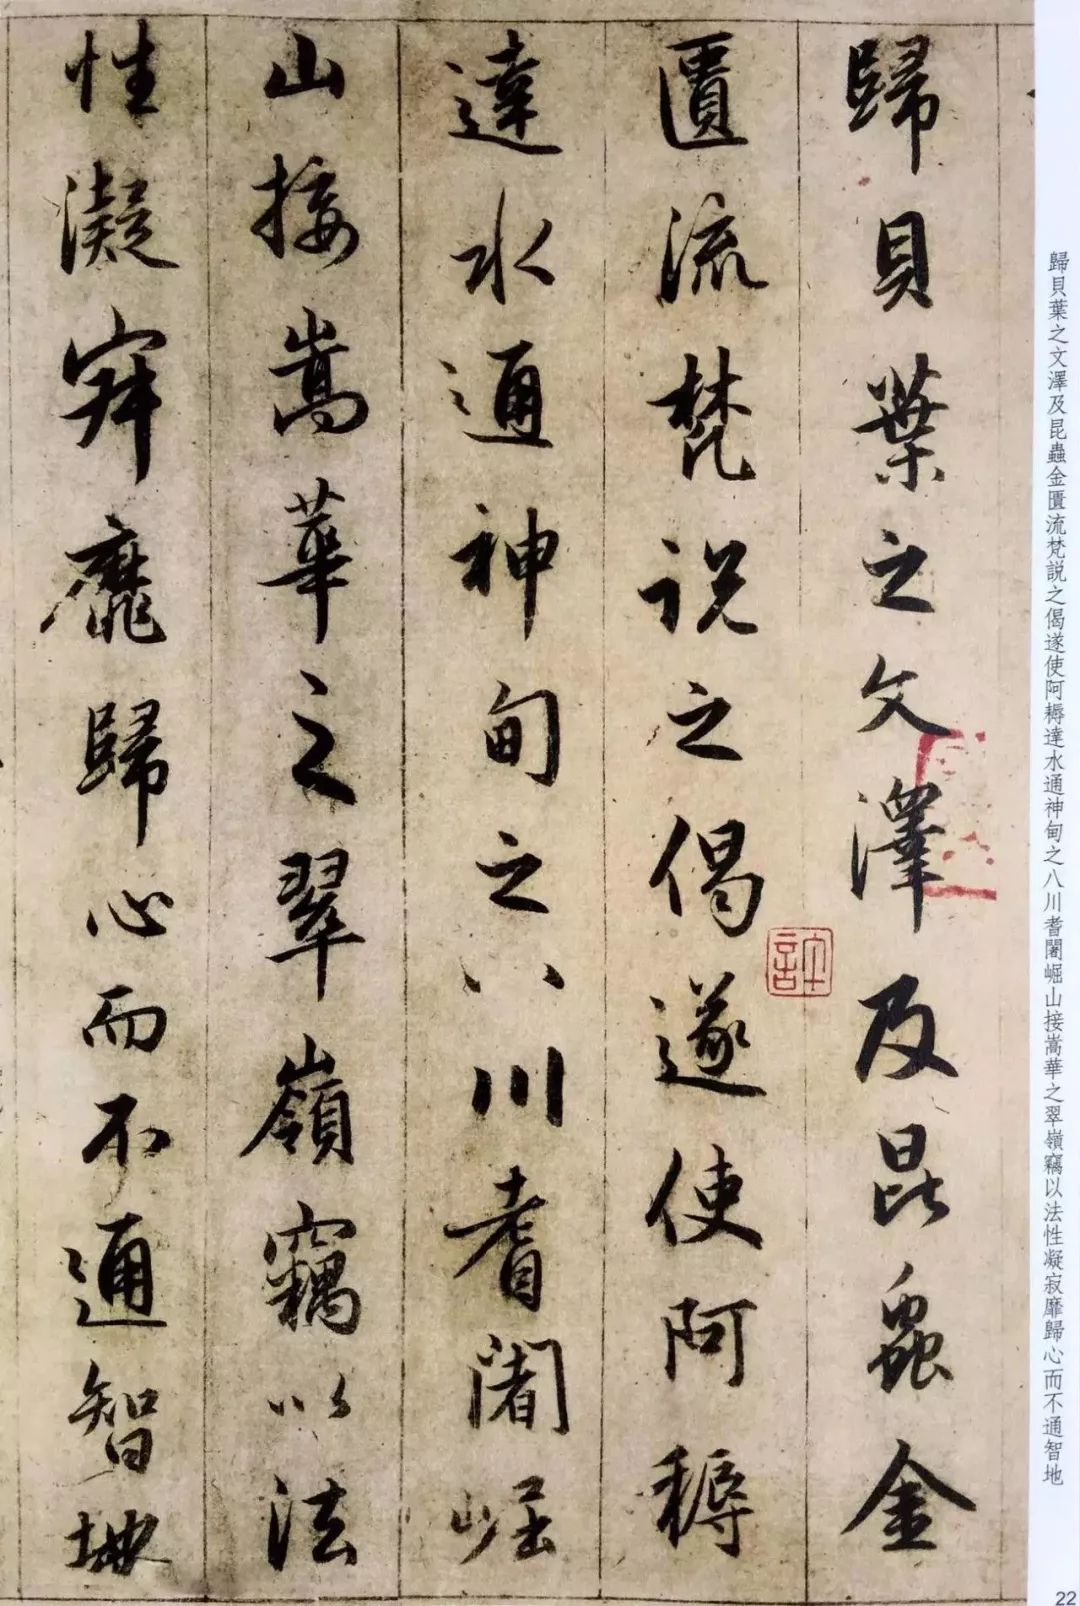 歸貝葉之文澤及昆蟲金
匱流梵説之偈遂使阿耨
達水通神甸之八川耆闍崛
山接嵩華之翠嶺竊以法
性凝寂靡歸心而不通智地
歸貝葉之文澤及昆蟲金匱流梵説之偈遂使阿耨達水通神甸之八川耆闍崛山接嵩華之翠嶺竊以法性凝寂靡歸心而不通智地
22